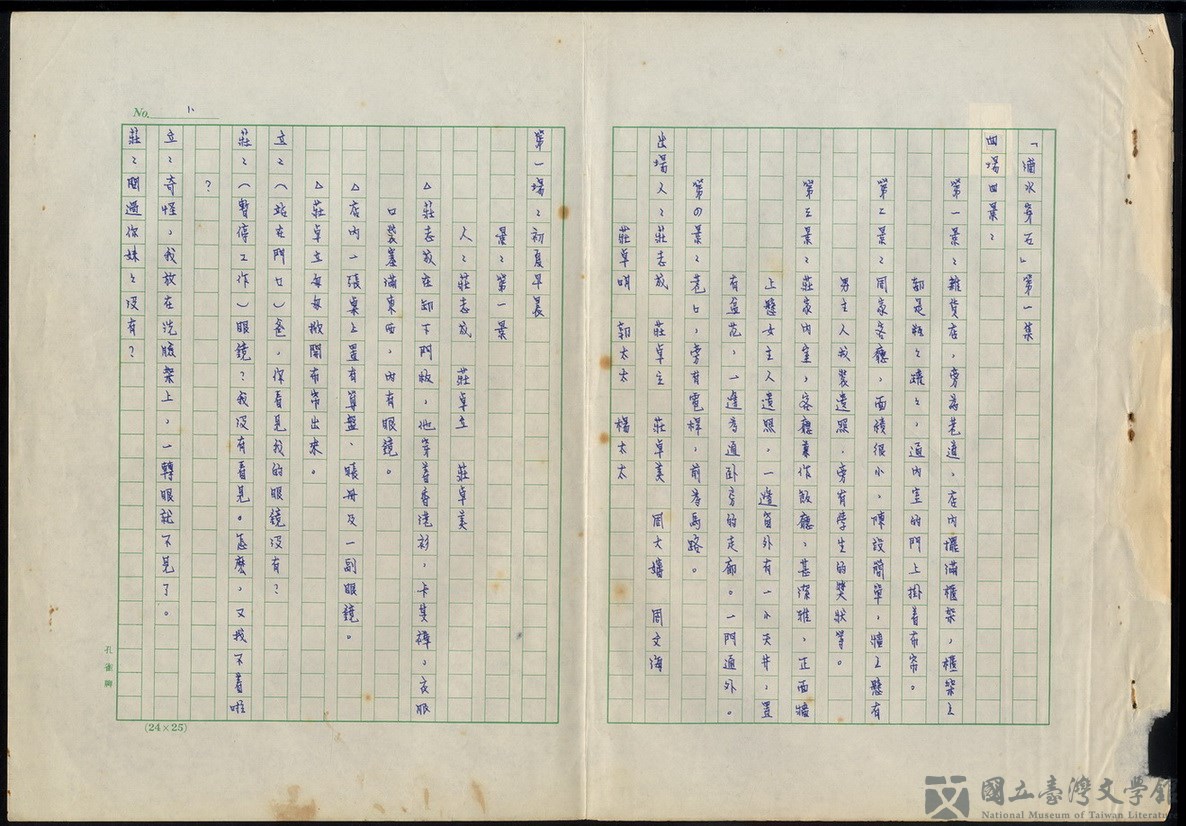 「滴水穿石」第一集
四場四景：
第一景：雜貨店，旁為巷道，店內擺滿櫃架，櫃架上
都是瓶瓶罐罐，通內室的門上掛着布帘。
第二景：周家客廳，面積很小，陳設簡單，牆上懸有
男主人戎裝遺照，旁有學生的獎狀等。
第三景：莊家內室，客廳兼作飯廳，甚潔雅，正面牆
上懸女主人遺照，一邊窗外有一小天井，置
有盆花，一邊為通卧房的走廊。一門通外。
第四景：巷口，旁有電桿，前為馬路。
出場人：莊志成 莊卓立 莊卓美 周大嬸 周文海
莊卓明 郭太太 楊太太
No. 1
第一場：初夏早晨
景：第一景
人：莊志成 莊卓立 莊卓美
△莊志成在卸下門板，他穿着香港衫，卡其褲，衣服
口袋塞滿東西，內有眼鏡。
△店內一張桌上置有算盤、賬冊及一副眼鏡。
△莊卓立匆匆掀開布帘出來。
立：（站在門口）爸，你看見我的眼鏡沒有？
莊：（暫停工作）眼鏡？我沒有看見。怎麼，又找不着啦
？
立：奇怪，我放在洗臉架上，一轉眼就不見了。
莊：問過你妹妹沒有？
孔雀牌
(24×25)
國立臺灣文學館
National Museum of Taiwan Literature